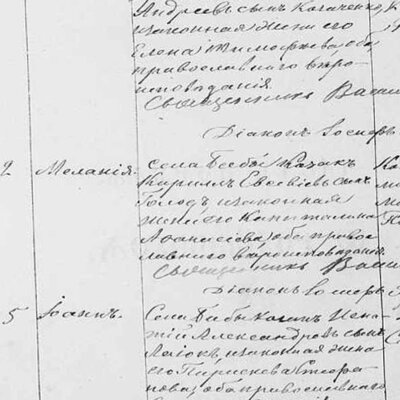 Андреевъ сынъ Косаченко
и законная жена его
Елена Тимофеева, оба
православнаго вѣро
исповѣданія
Священникъ Васи
Діаконъ Іосифъ
2 Меланія. Села Бабы казакъ
Кириллъ Евсевіевъ сынъ
Голодъ и законная
жена его Капитолина
Афанасіева, оба право
славнаго вѣроисповѣданія
Священникъ Васи
Діаконъ Іосифъ
5 Іоаннъ. Села Бабы казакъ Игна
тій Александровъ сынъ
и законная жена
его Стефа
нова, оба православнаго